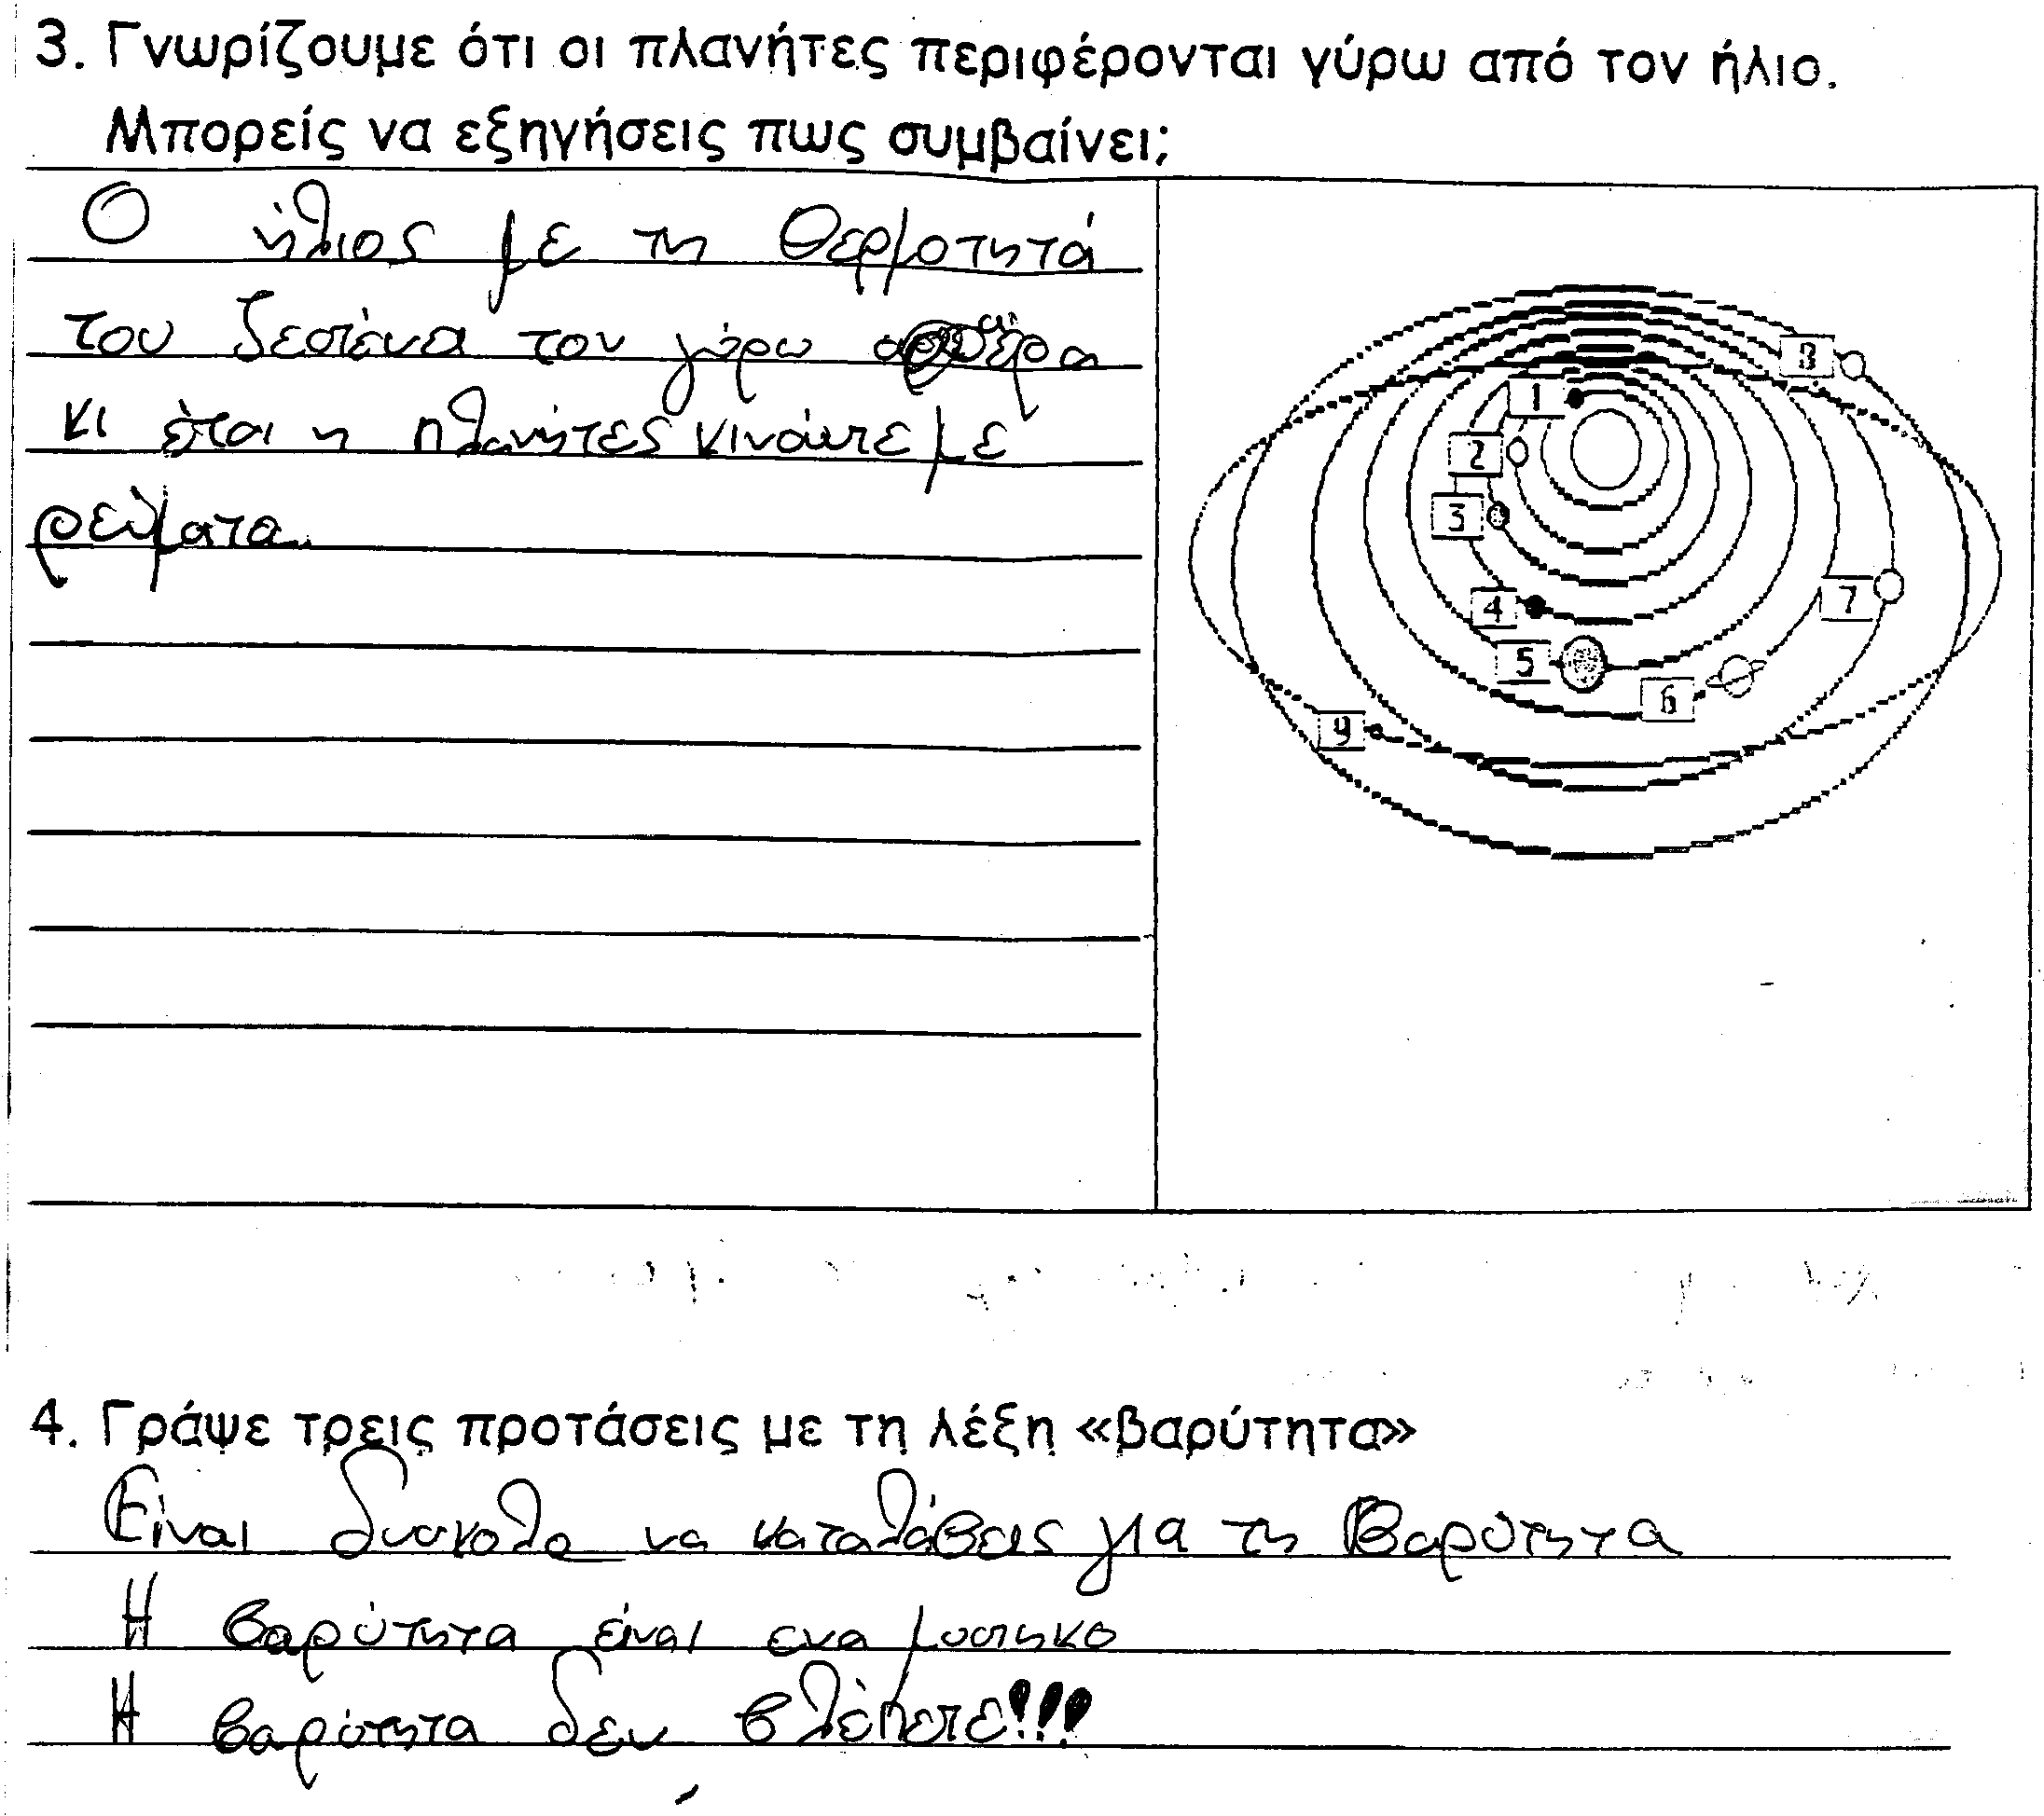 3. Γνωρίζουμε ότι οι πλανήτες περιφέρονται γύρω από τον ήλιο.
Μπορείς να εξηγήσεις πως συμβαίνει;
Ο ήλιος με τη θερμοτητά
του ζεσταίνα τον γύρω αέρα
κι έτσι η πλανήτες κινούντε με
ρεύματα.
1
2
3
4
5
6
7
8
9
4. Γράψε τρεις προτάσεις με τη λέξη «βαρύτητα»
Είναι δυσκολο να καταλάβεις για τη Βαρύτητα
Η βαρύτητα είναι ενα μυστηκο
Η βαρύτητα δεν βλέπετε!!!